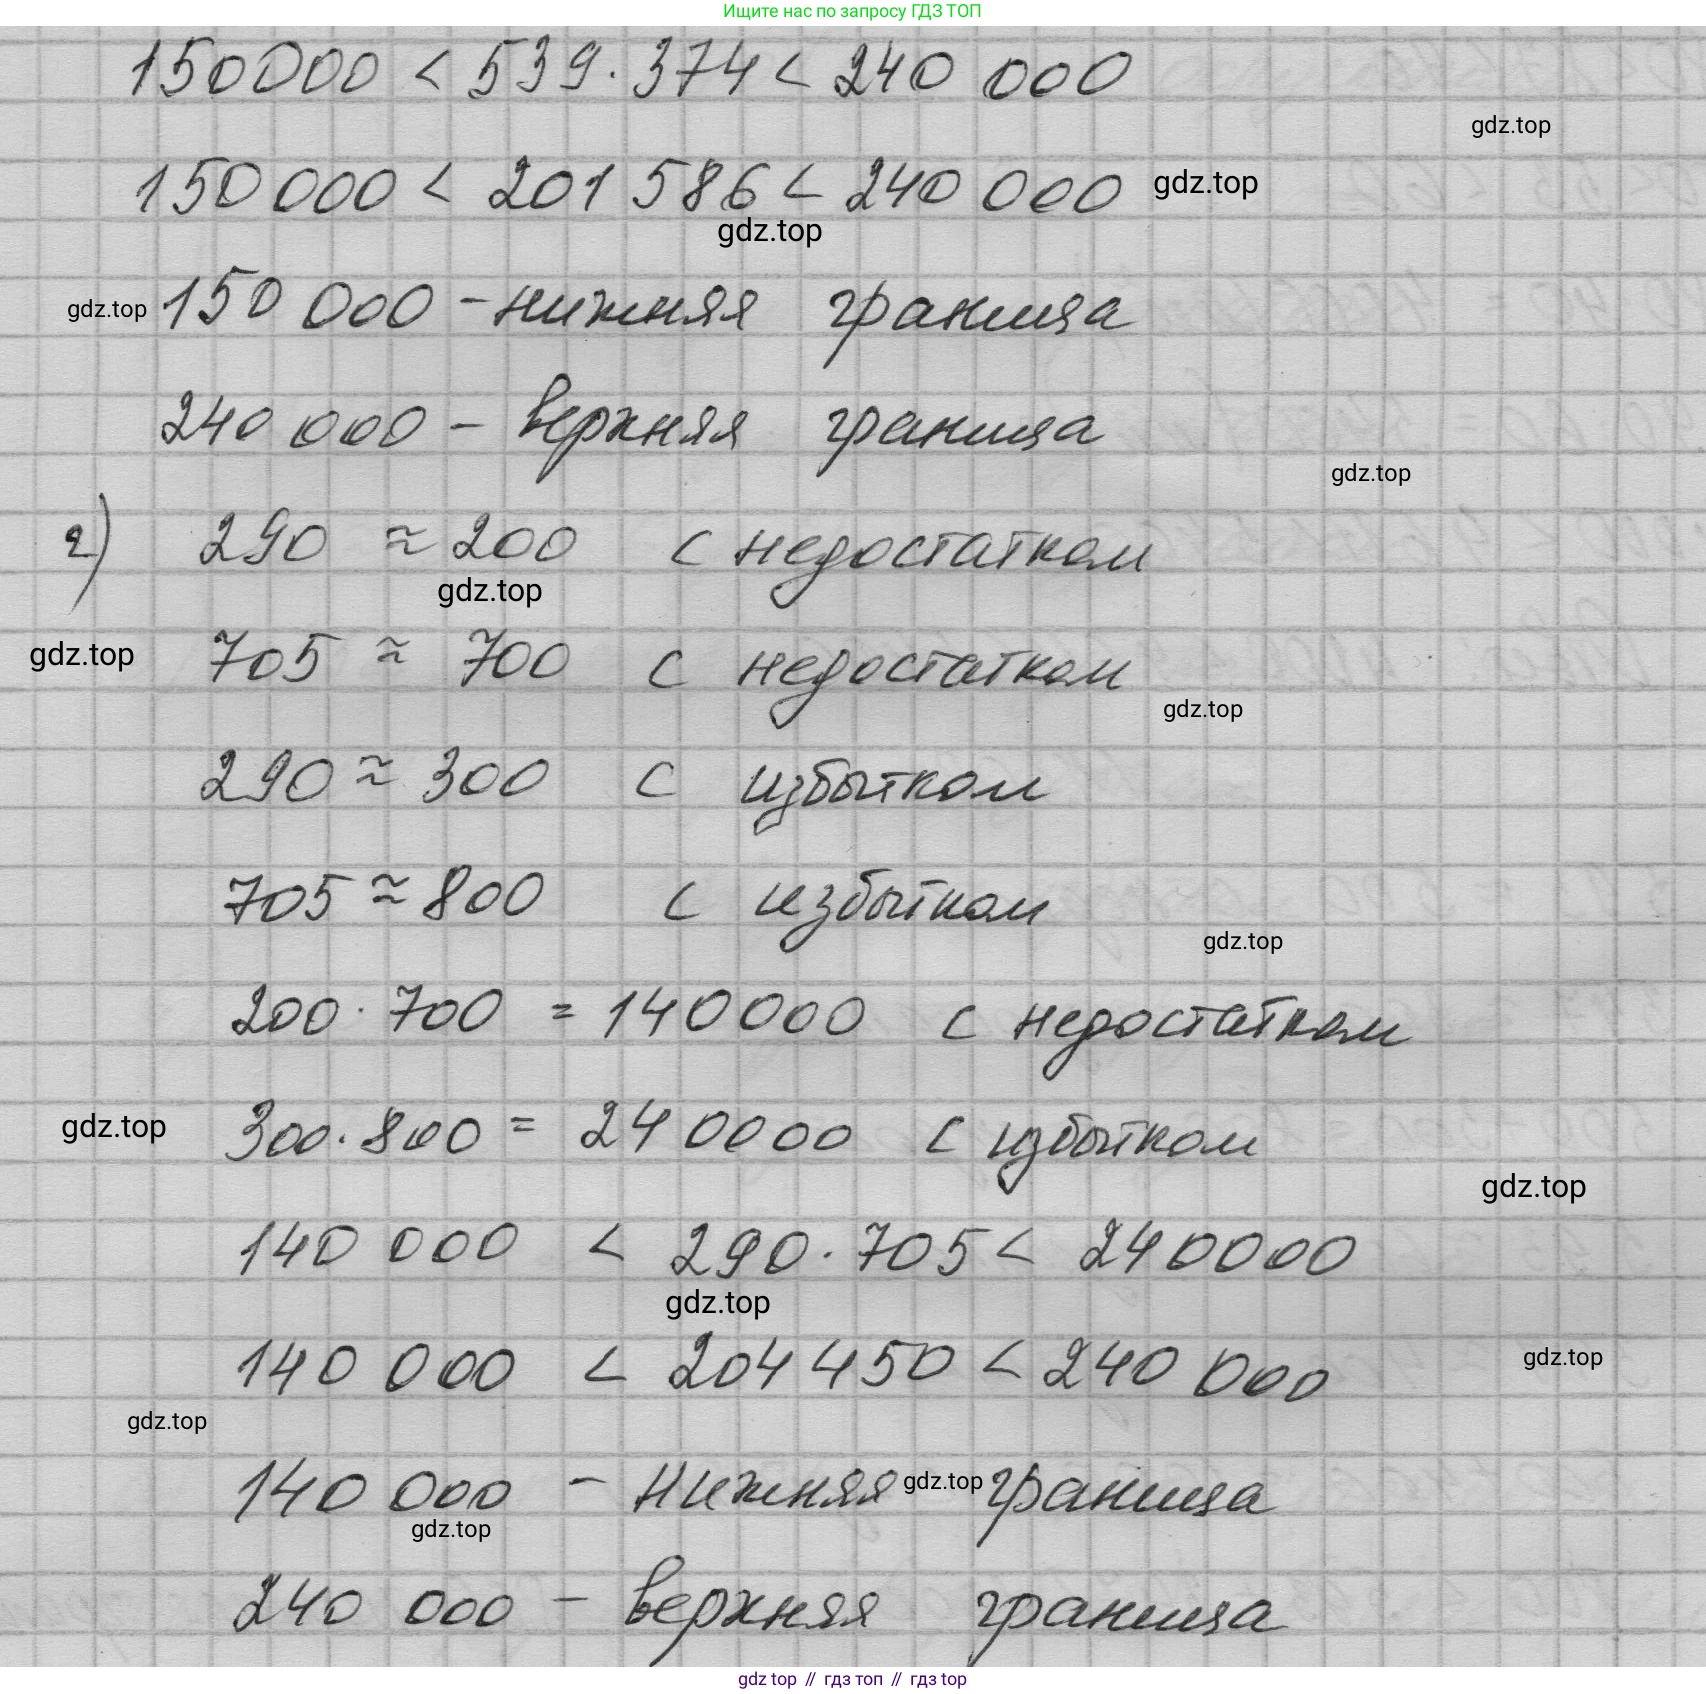 Ищите нас по запросу ГДЗ ТОП
150000 < 539 · 374 < 240 000
gdz.top
150 000 < 201 586 < 240 000 gdz.top
gdz.top
gdz.top 150 000 - нижняя граница
240 000 - верхняя граница
gdz.top
г) 290 ≈ 200 с недостатком
gdz.top
gdz.top 705 ≈ 700 с недостатком
gdz.top
290 ≈ 300 с избытком
705 ≈ 800 с избытком
gdz.top
200 · 700 = 140000 с недостатком
gdz.top 300 · 800 = 240000 с избытком
gdz.top
140 000 < 290 · 705 < 240000
gdz.top
140 000 < 204 450 < 240 000 gdz.top
gdz.top
140 000 - нижняя gdz.top граница
gdz.top
240 000 - верхняя граница
gdz top // гдз топ // гдз top